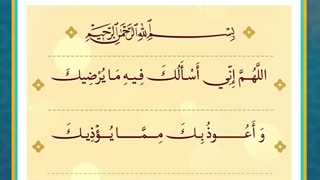 بِسْمِ اللهِ الرَّحْمٰنِ الرَّحِيْمِ
اللَّهُمَّ إِنِّي أَسْأَلُكَ فِيهِ مَا يُرْضِيكَ
وَ أَعُوذُ بِكَ مِمَّا يُؤْذِيكَ